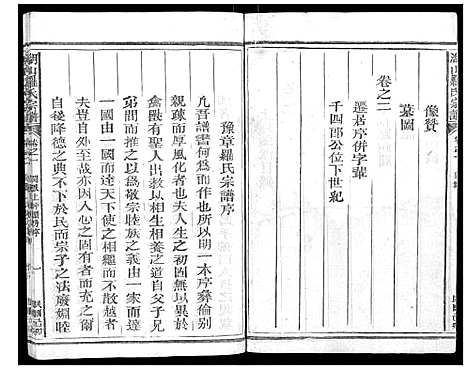 像贊
墓圖
卷之二
遷居序併字輩
千四郎公位下世紀
豫章羅氏宗譜序
凡吾譜書何爲而作也所以明一本序彝倫別
親疎而厚風化者也夫人生之初固無以異於
禽獸有聖人出敎以相生相養之道自父子兄
弟間而推之以爲敬宗收族之理由一家而達
一國由一國而達天下使之相繩而不散越者
夫豈自外至哉亦因人心之固有者而充之爾
自後降德之典不下於民而宗子之法廢媚睦